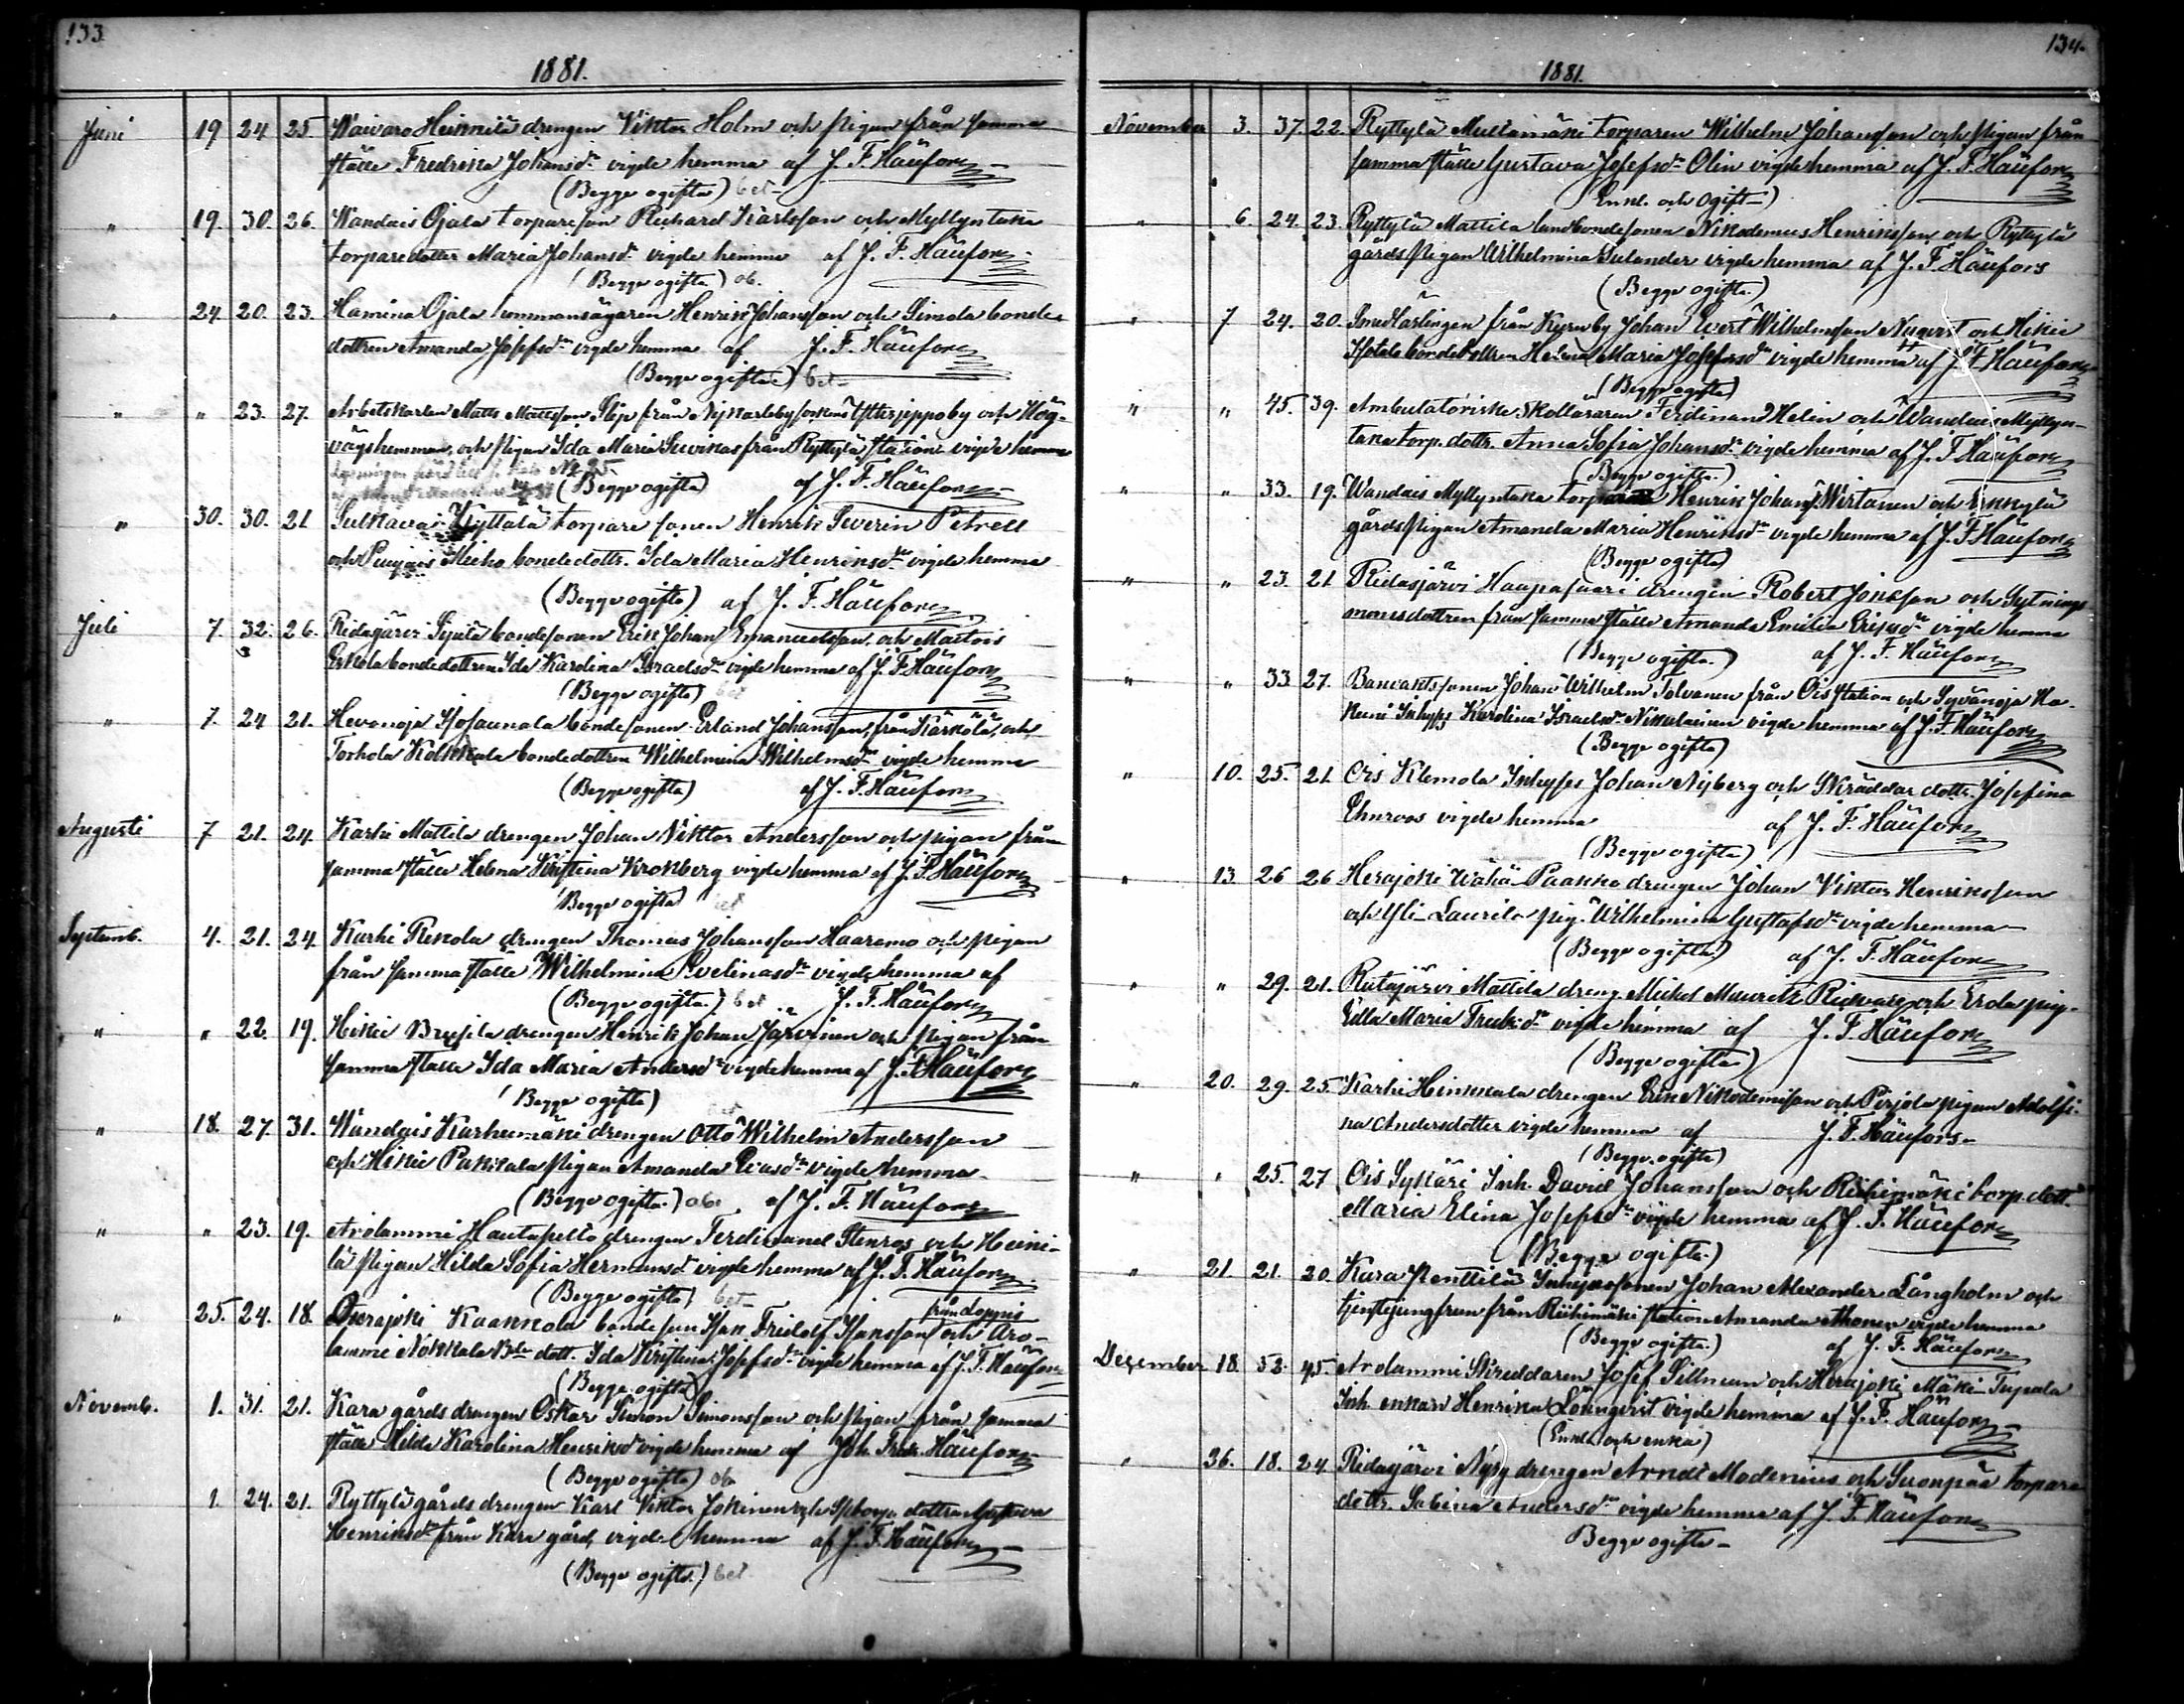 133
1881.
Juni 19 24 25. Waivaro Heikkilä drengen Viktor Holm och pigan från samma
ställe Fredrika Johansdr vigde hemma af J. F. Häufors
(Begge ogifta) bet
" 19. 30. 26. Wandais Ojala torpareson Richard Karlsson och Myllyntaka
torparedotter Maria Johansdr vigde hemma af J. F. Häufors
(Begge ogifta) ob.
" 24 20. 23. Hamina Ojala hemmansägaren Henrik Johansson och Simola bonde
dottren Amanda Josefsdr vigde hemma af J. F. Häufors
(Begge ogifta) bet
" " 23. 27. Arbetskarlen Matts Mattsson från Nykarleby sockens Ytterjeppo by och Hög-
vägs hemman, och pigan Ida Maria från Ryttylä station vigde hemma
(Begge ogifta) af J. F. Häufors
" 30. 30. 21 Kyttälä torpare sonen Henrik Severin Petrell
och bondedottr. Ida Maria Henriksdr vigde hemma
(Begge ogifta) af J. F. Häufors
Juli 7. 32. 26. Ridasjärvi bondesonen Erik Johan Emanuelsson och Martois
Erkola bondedottren Ida Karolina Israelsdr vigde hemma af J. F. Häufors
(Begge ogifta) bet
" 7. 24 21. Hevonoja bondesonen Erland Johansson, från Kärkölä, och
Torhola Kolkkala bondedottren Wilhelmina Wilhelmsdr vigde hemma
(Begge ogifta) af J. F. Häufors
Augusti 7 21. 24. Karhi Mattila drengen Johan Viktor Andersson och pigan från
samma ställe Helena Kristina Kronberg vigde hemma af J. F. Häufors
(Begge ogifta) bet
Septemb. 4. 21. 24. Karhi Rekola drengen Thomas Johansson Haaramo och pigan
från samma ställe Wilhelmina Evelinasdr vigde hemma af
(Begge ogifta.) bet J. F. Häufors
" " 22. 19. Hikie drengen Henrik Johan Järvinen och pigan från
samma ställe Ida Maria Andersdr vigde hemma af J. F. Häufors
(Begge ogifta)
" 18. 27. 31. Wandais Karhumäki drengen Otto Wilhelm Andersson
och Hikie Pakkala pigan Amanda Evasdr vigde hemma
(Begge ogifta.) ob. af J. F. Häufors
" " 23. 19. Arolammi Hautapelto drengen Ferdinand Stenros och Heini-
lä pigan Hilda Sofia Hermansdr vigde hemma af J. F. Häufors
(Begge ogifta) bet
" 25. 24. 18. Herajoki Kaakkola bondeson Isak Fridolf Isaksson från Loppis och Aro-
lammi Nokkala Bde dott. Ida Kristina Josefsdr vigde hemma af J. F. Häufors
(Begge ogifta)
Novemb. 1. 31. 21. Kara gårds drengen Oskar Simon Simonsson och pigan från samma
ställe Hilda Karolina Henriksdr vigde hemma af Joh. Fredr. Häufors
(Begge ogifta) ob
1. 24. 21. Ryttylä gårds drengen Karl Viktor Jokinen och dottren Gustava
Henriksdr från Kara gård, vigde hemma af J. F. Häufors
(Begge ogifta.) bet
134.
1881.
November 3. 37. 22. Ryttylä Mustamäki torparen Wilhelm Johansson och pigan från
samma ställe Gustava Josefsdr Olin vigde hemma af J. F. Häufors
Enkl. och ogift)
" 6. 24. 23. Ryttylä Mattila landbondesonen Nikodemus Henriksson och Ryttylä
gårds pigan Wilhelmina Sulander vigde hemma af J. F. Häufors
(Begge ogifta.)
" 7 24. 20. Smedlärlingen från Kyrnby Johan Evert Wilhelmsson Nyqvist och Hikie
bondedottren Helena Maria Josefsdr vigde hemma af J. F. Häufors
(Begge ogifta)
" " 45. 39. Ambulatoriske Skolläraren Ferdinand Helin och Wandais Myllyn-
taka torp. dottr. Anna Sofia Johansdr vigde hemma af J. F. Häufors
(Begge ogifta.)
" " 33. 19. Wandais Myllyntaka Henrik Johans. Wirtanen och Erkylä
gårds pigan Amanda Maria Henriksdr vigde hemma af J. F. Häufors
(Begge ogifta)
" " 23. 21 Ridasjärvi Haapasaari drengen Robert Jonsson och Sytnings
monsdottren från samma ställe Amanda Emilia Eriksdr vigde hemma
(Begge ogifta.) af J. F. Häufors
" " 33 27. Banvaktssonen Johan Wilhelm Tolvanen från Ois station och Syvänoja
Inhyses Karolina Israelsdr Nikulainen vigde hemma af J. F. Häufors
(Begge ogifta)
" 10. 25. 21. Ois Klemola Inhyses Johan Nyberg och Skräddar dottr. Josefina
Ehnroos vigde hemma af J. F. Häufors
(Begge ogifta)
" 13. 26 26 Herajoki Wähä-Paakko drengen Johan Viktor Henriksson
och Yli-Laurila pig. Wilhelmina Gustafsdr vigde hemma
(Begge ogifta.) af J. F. Häufors
" " 29. 21. Mattila dreng. Mickel Mauritz och Erola pig.
Edla Maria Fredr.dr vigde hemma af J. F. Häufors
(Begge ogifta)
" 20. 29. 25. Karhi Heinkkala drengen Erik Nikodemisson och Perjola pigan Adolfi-
na Andersdotter vigde hemma af J. F. Häufors
(Begge ogifta)
" " 25. 27 Ois Syklari Inh. David Johansson och Riihimäki torp. dott.
Maria Elina Josefsdr vigde hemma af J. F. Häufors
(Begge ogifta.)
" 21. 21. 20. Kara Penttilä Inhysessonen Johan Alexander Långholm och
tjenstejungfrun från Riihimäki station Amanda Ahonen vigde hemma
(Begge ogifta.) af J. F. Häufors
Dezember 18. 52. 45. Arolammi Skreddaren Josef Sillman och Herajoki Mäki-Tupala
Inh. enkan Henrika Löngqvist vigde hemma af J. F. Häufors
(Enkl. och enka)
" 26. 18. 24. Ridasjärvi Nyby drengen Arndt Modenius och Suonpää torpare
dottr. Sabina Andersdr vigde hemma af J. F. Häufors
Begge ogifta